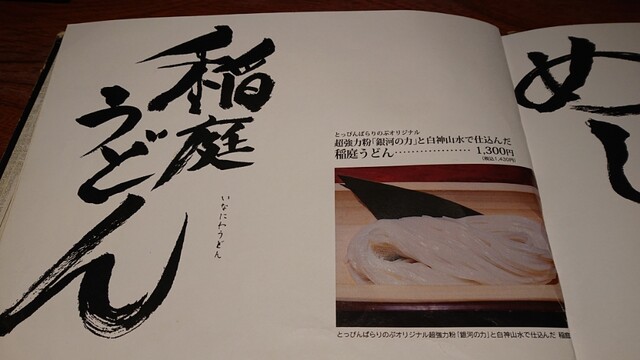 稲庭
うどん
いなにわうどん
とっぴんぱらりのぷオリジナル
超強力粉「銀河の力」と白神山水で仕込んだ
稲庭うどん………………… 1,300円
(税込1,430円)
とっぴんぱらりのぷオリジナル超強力粉「銀河の力」と白神山水で仕込んだ 稲庭
めし